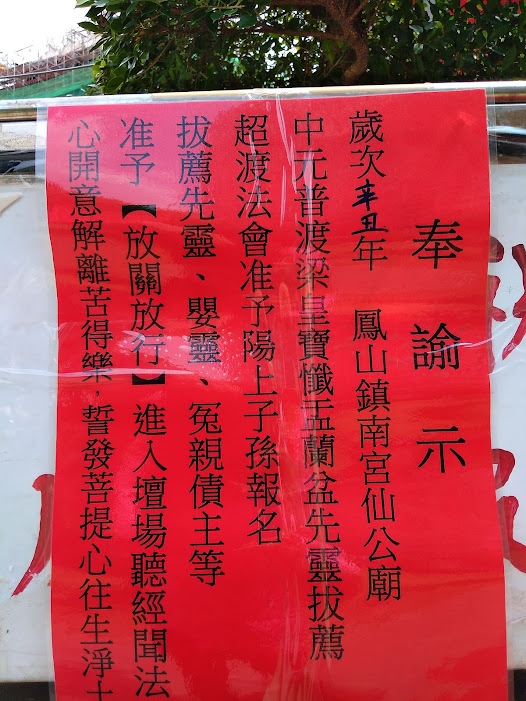 奉諭示
歲次辛丑年 鳳山鎮南宮仙公廟
中元普渡梁皇寶懺盂蘭盆先靈拔薦
超渡法會准予陽上子孫報名
拔薦先靈、嬰靈、冤親債主等
准予【放關放行】進入壇場聽經聞法
心開意解離苦得樂，誓發菩提心往生淨土